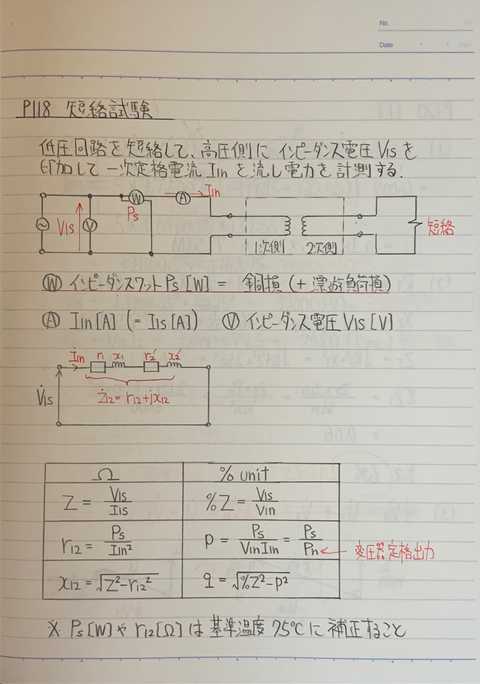 No.
Date
P118 短絡試験
低圧回路を短絡して、高圧側にインピーダンス電圧V1Sを
印加して一次定格電流I1nを流し電力を計測する.
W A I1n
Ps
V1S V 1次側 2次側 短絡
W インピーダンスワットPs[W] = 銅損(+漂遊負荷損)
A I1n[A](=I1s[A]) V インピーダンス電圧V1S[V]
İ1n r1 x1 r2' x2'
V̇1S Ż12=r12+jx12
Ω % unit
Z = V1S/I1S %Z = V1S/V1n
r12 = Ps/I1n² p = Ps/V1nI1n = Ps/Pn ← 変圧器定格出力
x12 = √Z²-r12² q = √%Z²-p²
※ Ps[W]やr12[Ω]は基準温度75℃に補正すること